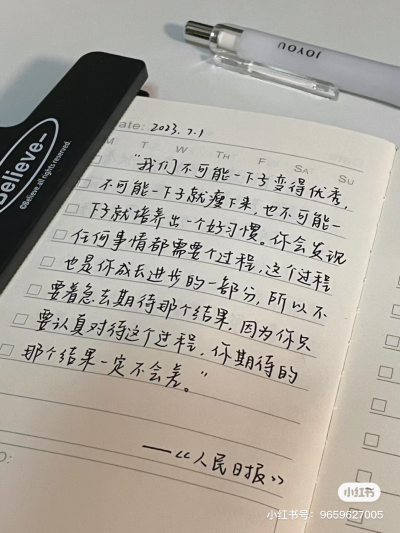 JOYOU
Believe—
©Believe.all rights reserved.
Date: 2023.7.1
M T W TH F SA SU
“我们不可能一下子变得优秀，
不可能一下子就瘦下来，也不可能一
下子就培养出一个好习惯。你会发现
任何事情都需要个过程，这个过程
也是你成长进步的一部分，所以不
要着急去期待那个结果，因为你只
要认真对待这个过程，你期待的
那个结果一定不会差。”
——《人民日报》
O:
小红书
小红书号：9659627005